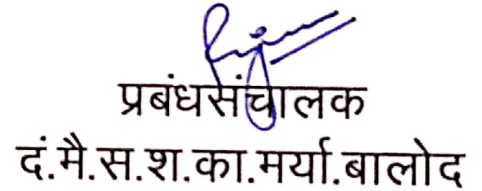 प्रबंधसंचालक
दं.मै.स.श.का.मर्या.बालोद